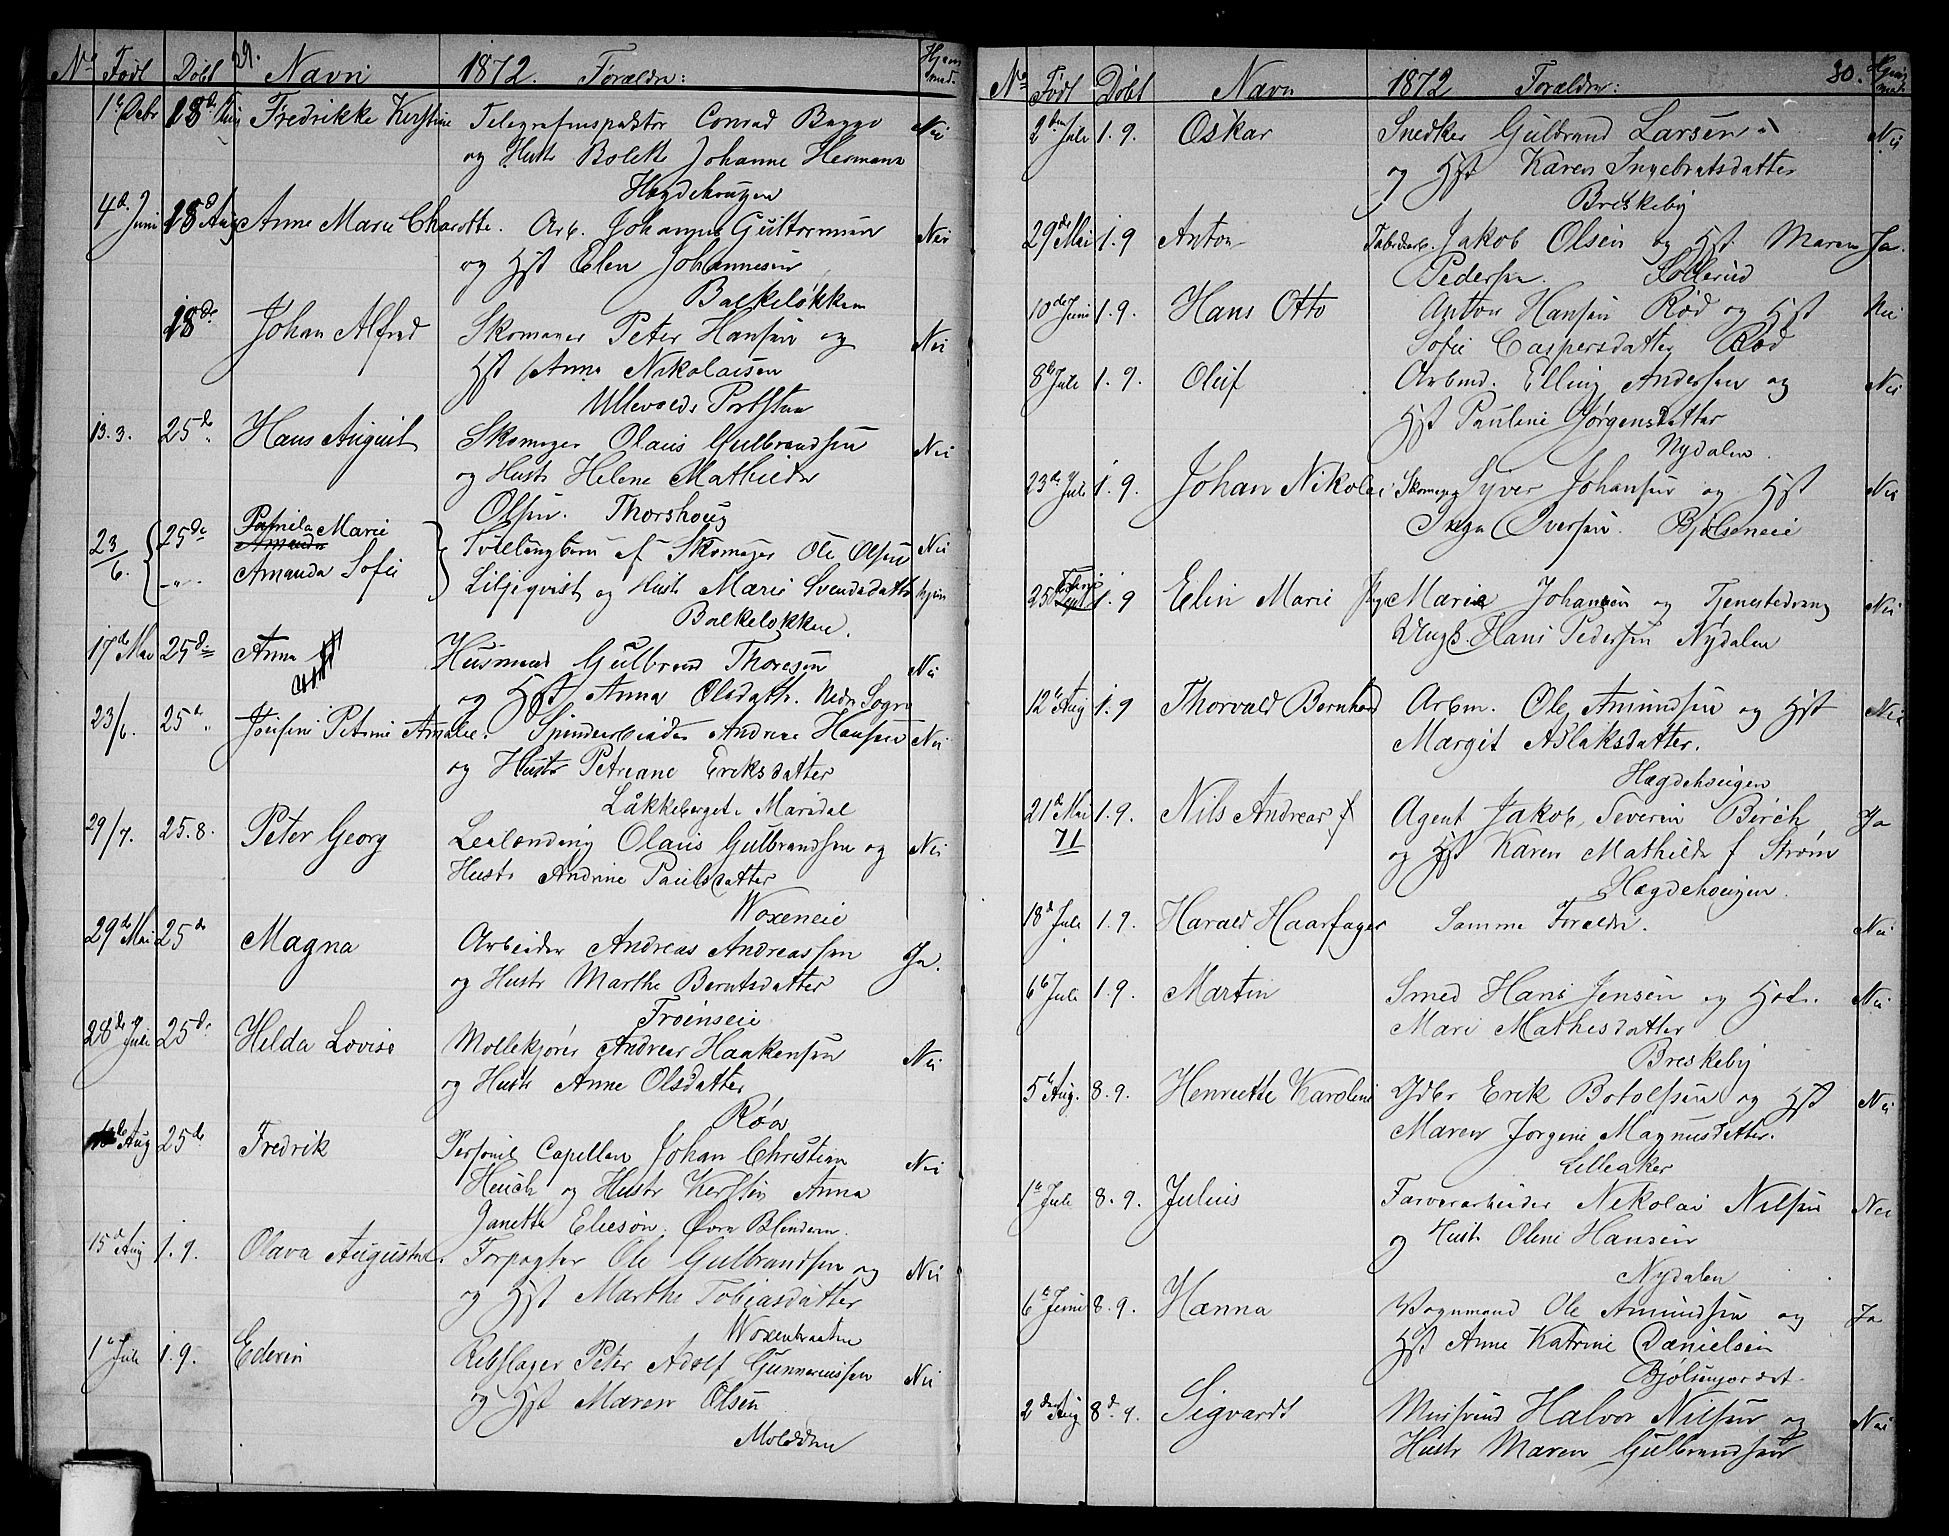 No Født Døbt 29. Navn 1872. Forældre: Hjem med.
1e Debr 18de Aug Fredrikke Kirstine Telegrafinspektør Conrad Bagge Nei
og Hustr Bolette Johanne Hermana
Hægdehaugen
4de Juni 18de Aug Anne Marie Charlotte. Arb. Johannes Guttormsen Nei
og Hst Elen Johannesen
Balkeløkken
18de Johan Alfred Skomager Peter Hansen og Nei
Hst Anna Nikolaisen
Ullevolds Portstue
13. 3. 25de Hans August Skomager Olaus Gulbrandsen Nei
og Hustr Helene Mathilde
Olsen. Thorshoug
23/6. 25de Pamila Marie Tvillingbørn af Skomager Ole Olsen Nei
-"- Amanda Sofie Liljeqvist og Hustr Marie Svendsdatter hjem
Balkeløkken.
17de Mai 25de Anna Husmand Gulbrand Thoresen Nei
og Hst Anna Olsdatt. Nedr. Sogn
23/6. 25de Josefine Petrine Amalie. Spinderibeider Andreas Hansen Nei
og Hustr Petriane Eriksdatter
Låkkeberget. Maridal
29/7. 25.8. Peter Georg Leilænding Olaus Gulbrandsen og Nei
Hustr Andrine Paulsdatter
Woxeneie
29de Mai 25de Magna Arbeider Andreas Andreassen Ja.
og Hustr Marthe Berntsdatter
Frøenseie
28de Juli 25de Helda Lovise Møllekjører Andreas Haakensen Nei
og Hustr Anne Olsdatter
Røa
Aug 25de Fredrik Personel Capellan Johan Christian Nei
Heuch og Hustr Kerstin Anna
Janette Eliesøn. Øvre Blindern.
15de Aug 1.9. Olava Augusta. Forpagter Ole Gulbrandsen og Nei
og Hst Marthe Tobiasdatter
Woxenbraaten
1e Juli 1.9. Edevin Rebslager Peter Adolf Gunneriussen Nei
og Hst Maren Olsen
No Født Døbt Navn 1872 Forældre: 30. Hjem med.
2den Juli 1.9. Oskar Snedker Gulbrand Larsen Nei
og Hst Karen Ingebretsdatter
Breskeby
29de Mai 1.9 Anton Fabrikarb. Jakob Olsen og Hst Maren Ja.
Pedersen. Sollerud
10de Juni 1.9. Hans Otto Anton Hansen Rød og Hst Nei
Sofie Caspersdatter Rød
8de Juli 1.9. Oluf Arbmd. Elling Andersen og Nei
Hst Pauline Jørgensdatter
Nydalen.
23de Juli 1.9. Johan Nikolai Skomager Syver Johansen og Hst Nei
Inga Iversen. Bjølseneie
25 1.9 Elin Marie Pige Marie Johansen og Tjenestedreng Nei
Ungk. Hans Pedersen Nydalen
12te Aug 1.9 Thorvald Bernhard Arbm. Ole Amundsen og Hst Nei
Margit Aslaksdatter.
Hægdehougen
21de Mai 1.9. Nils Andreas f Agent Jakob Severin Birch Ja
71 og Hst Karen Mathilde f Strøm
Hægdehougen.
18de Juli 1.9. Harald Haarfager Samme Foreldre. Nei
6te Juli 1.9. Martin Smed Hans Jensen og Hst. Nei
Mari Mathisdatter
Breskeby
5te Aug. 8.9. Henriette Karoline Gdbr Erik Botolfsen og Hst Nei
Maren Jørgine Magnusdatter.
Lilleaker
1e Juli 8.9. Julius Farverarbeider Nikolai Nilsen Nei
og Hustr Oline Hansen
Nydalen
6te Juni 8.9. Hanna Vognmand Ole Amundsen og Ja
Hst Anne Katrine Danielsen
Bjølsenjordet.
2den Aug 8de 9. Sigvardt Mursvend Halvor Nilsen og Nei
Hustr Maren Gulbrandsen